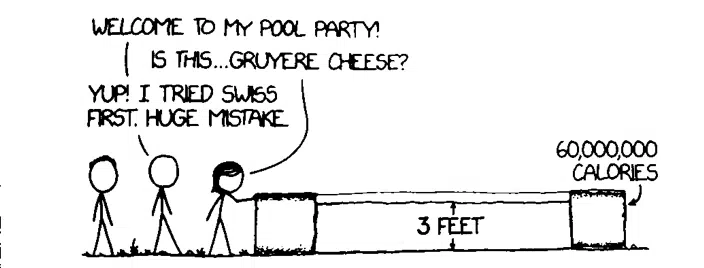 WELCOME TO MY POOL PARTY!
IS THIS...GRUYERE CHEESE?
YUP! I TRIED SWISS
FIRST. HUGE MISTAKE
60,000,000
CALORIES
3 FEET